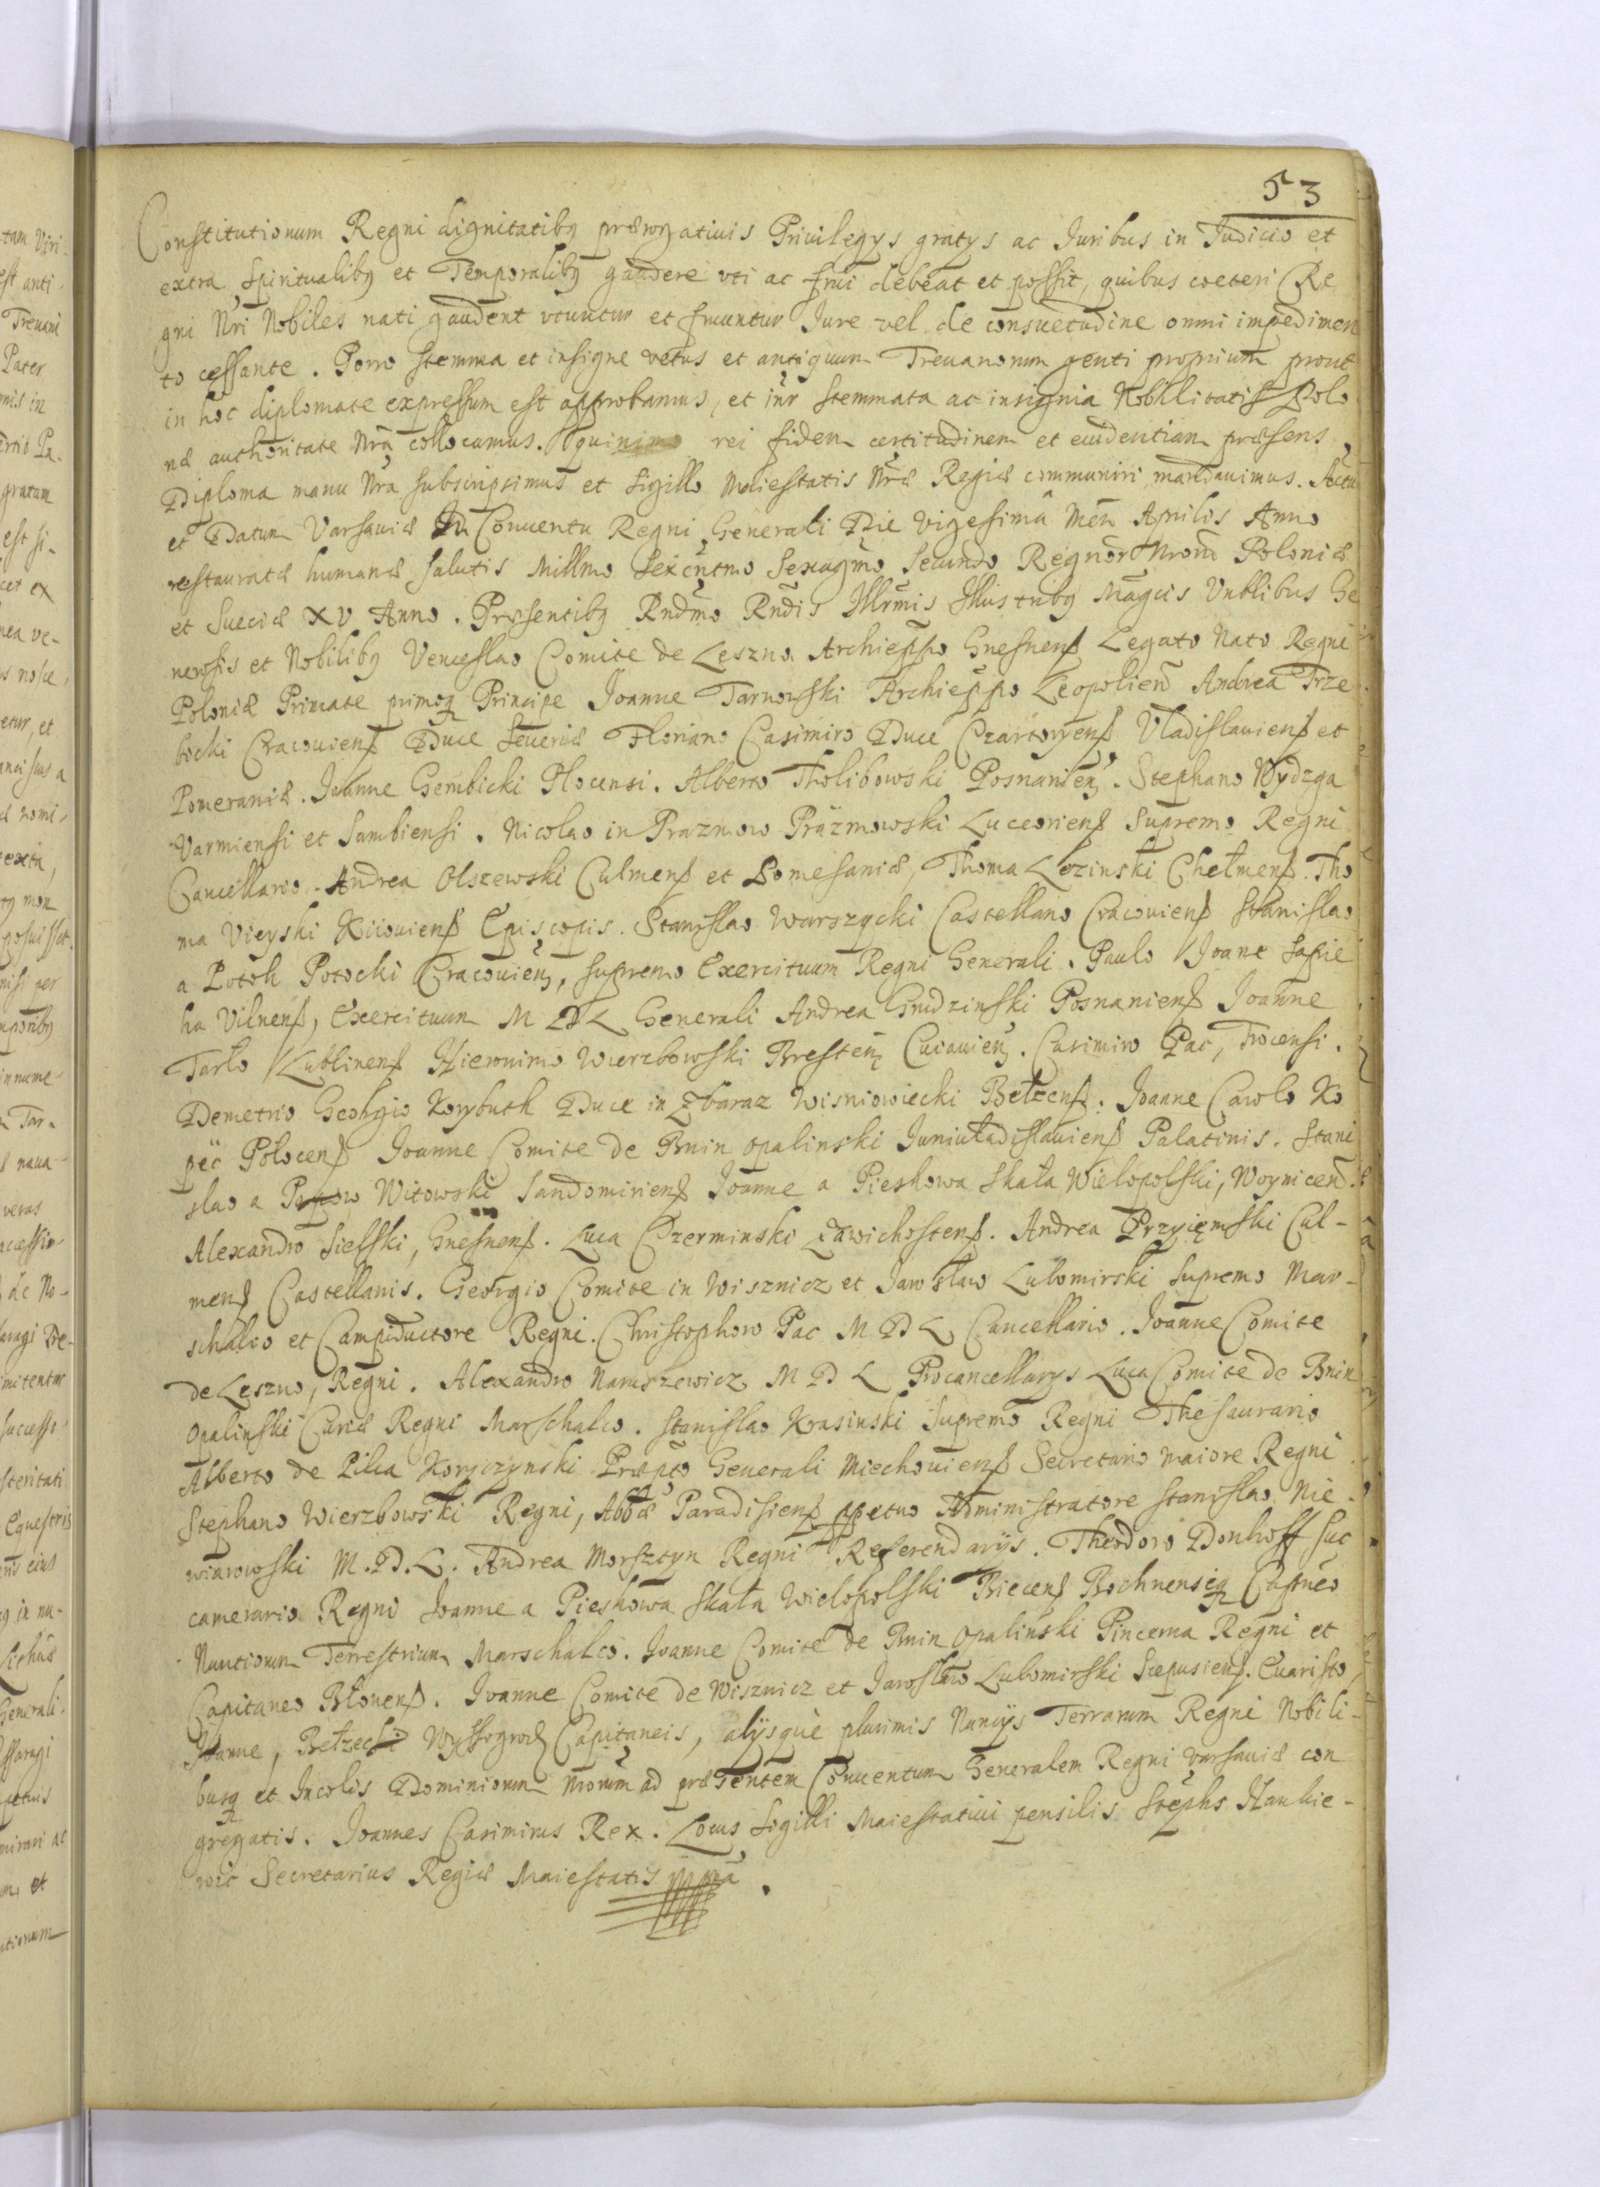 53
Constitutionum Regni dignitatibq prærogatiuis Priuilegys gratys ac Iuribus in Iudicio et
extra Spiritualibq et Temporalibq gaudere vti ac frui debeat et possit, quibus coeteri Re
gni Nri Nobiles nati gaudent vtuntur et fruuntur Iure vel de consuetudine omni impedimen
to cessante. Porro stemma et insigne vetus et antiquum Treuanorum genti proprium prout
in hoc diplomate expressum est approbamus, et inr stemmata ac insignia Nobilitatis Polo
næ authoritate Nra collocamus. rei fidem certitudinem et euidentiam præsens
Diploma manu Nra subscripsimus et sigillo Maiestatis Nræ Regiæ communiri mandauimus. Actu
et Datum Varsauiæ In Conuentu Regni Generali Die Vigesima Men Aprilis Anno
restauratæ humanæ salutis Millmo Sexcntmo Sexagmo Secundo Regnor Nrom Poloniæ
et Sueciæ XV Anno. Præsentibq Rndmo Rndis Illrmis Illustribq Magcis Vntlibus Ge
nerosis et Nobilibq Venceslao Comite de Leszno Archieppo Gnesnens Legato Nato Regni
Poloniæ Primate primoq Principe Joanne Tarnowski Archieppo Leopolien Andrea Trze
bicki Cracouiens Duce Seueriæ Floriano Casimiro Duce Czartoryens Vladislauiens et
Pomeraniæ. Joanne Gembicki Plocensi. Alberto Tholibowski Posnanien. Stephano Wydzga
Varmiensi et Sambiensi. Nicolao in Prazmow Prazmowski Luceoriens Supremo Regni
Cancellario. Andrea Olszewski Culmens et Pomesaniæ, Thoma Lezinski Chełmens. Tho
ma Vieyski Kiiouiens Episcopis. Stanislao Warszycki Castellano Cracouiens Stanislao
a Potok Potocki Cracouien, supremo Exercituum Regni Generali. Paulo Joane Sapie
ha Vilnens, Exercituum M D L Generali Andrea Grudzinski Posnaniens Joanne
Tarło Lublinens Hieronimo Wierzbowski Bresten Cuiauien. Casimiro Pac, Trocensi.
Demetrio Georgio Korybuth Duce in Zbaraz Wisniowiecki Bełzens. Joanne Carolo Ko
pec Polocens Joanne Comite de Bnin Opalinski Iuniuładislauiens Palatinis. Stani
slao a Witowski Sandomiriens Joanne a Pieskowa Skała Wielopolski, Woynicen.
Alexandro Sielski, Gnesnens. Luca Czerminski Zawichostens. Andrea Przyięmski Cul-
mens Castellanis. Georgio Comite in Wisznicz et Jarosław Lubomirski Supremo Mar-
schalco et Campiductore Regni. Christophoro Pac M D L Cancellario. Joanne Comite
de Leszno, Regni. Alexandro Naruszewicz M D L Procancellarys Luca Comite de Bnin
Opalinski Curiæ Regni Marschalco. Stanislao Krasinski Supremo Regni Thesaurario
Alberto de Pilca Koryczynski Præpto Generali Miechouiens Secretario maiore Regni.
Stephano Wierzbowski Regni, Abbæ Paradisiens ppetuo Administratore Stanislao Nie-
wiarowski M.D.L. Andrea Morsztyn Regni Referendarijs. Theodoro Donhoff suc
camerario Regni Joanne a Pieskowa Skała Wielopolski Biecens Bochnensiq Capneo
Nuntiorum Terrestrium Marschalco. Joanne Comite de Bnin Opalinski Pincerna Regni et
Capitaneo Błonens. Joanne Comite de Wisznicz et Jarosław Lubomirski Scepusiens. Euaristo
Joanne, Bełzecki Wyssogrod Capitaneis, alijsque plurimis Nuncijs Terrarum Regni Nobili-
busq et Incolis Dominiorum Nrorum ad præsentem Conuentum Generalem Regni Varsauiæ con
gregatis. Joannes Casimirus Rex. Locus Sigilli Maiestatiui pensilis Stephs Hankie-
wic Secretarius Regiæ Maiestatis mpa.